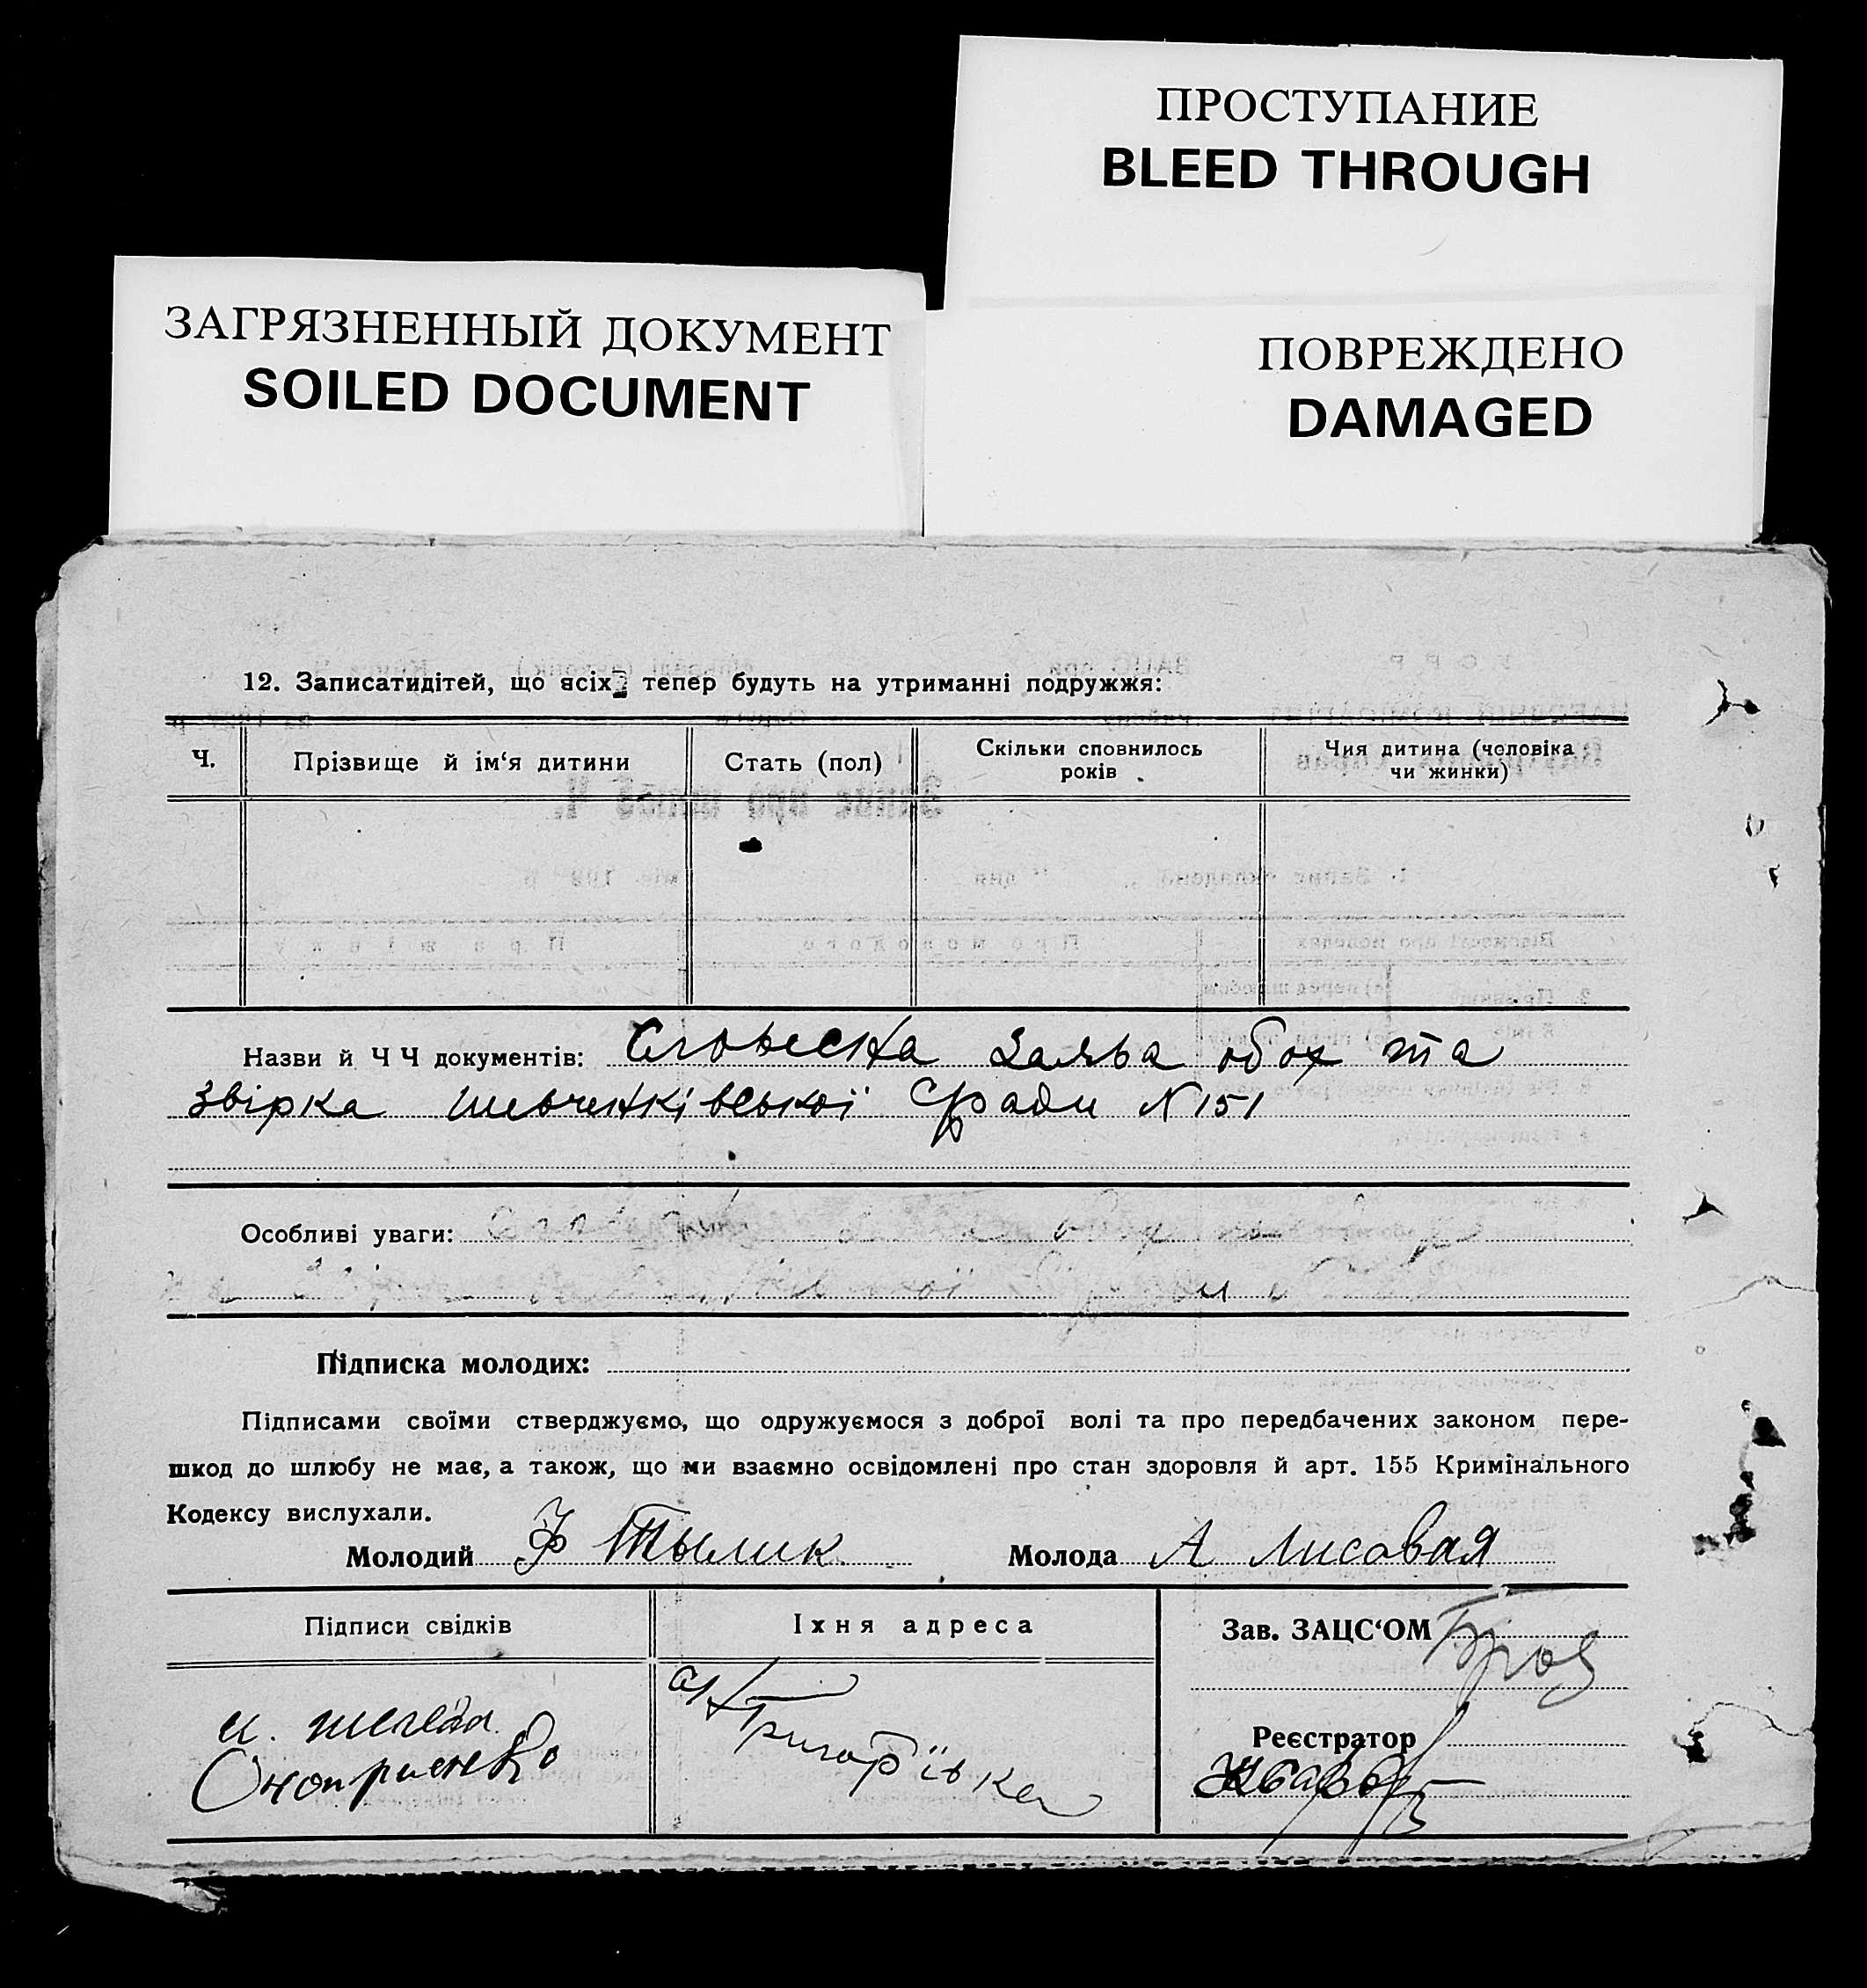 ПРОСТУПАНИЕ
BLEED THROUGH
ЗАГРЯЗНЕННЫЙ ДОКУМЕНТ
SOILED DOCUMENT
ПОВРЕЖДЕНО
DAMAGED
12. Записатидітей, що всіх тепер будуть на утриманні подружжя:
Ч.
Прізвище й ім‘я дитини
Стать (пол)
Скільки сповнилось
років
Чия дитина (чоловіка
чи жинки)
Назви й Ч Ч документів: Словесна заява обох та
звірка Шевченківської С/ради N 151
Особливі уваги:
Підписка молодих:
Підписами своїми стверджуємо, що одружуємося з доброї волі та про передбачених законом пере-
шкод до шлюбу не має, а також, що ми взаємно освідомлені про стан здоровля й арт. 155 Кримінального
Кодексу вислухали.
Молодий Ф Тылик
Молода А Лисовая
Підписи свідків
Їхня адреса
Зав. ЗАЦС‘ОМ
Реєстратор
Григорївка